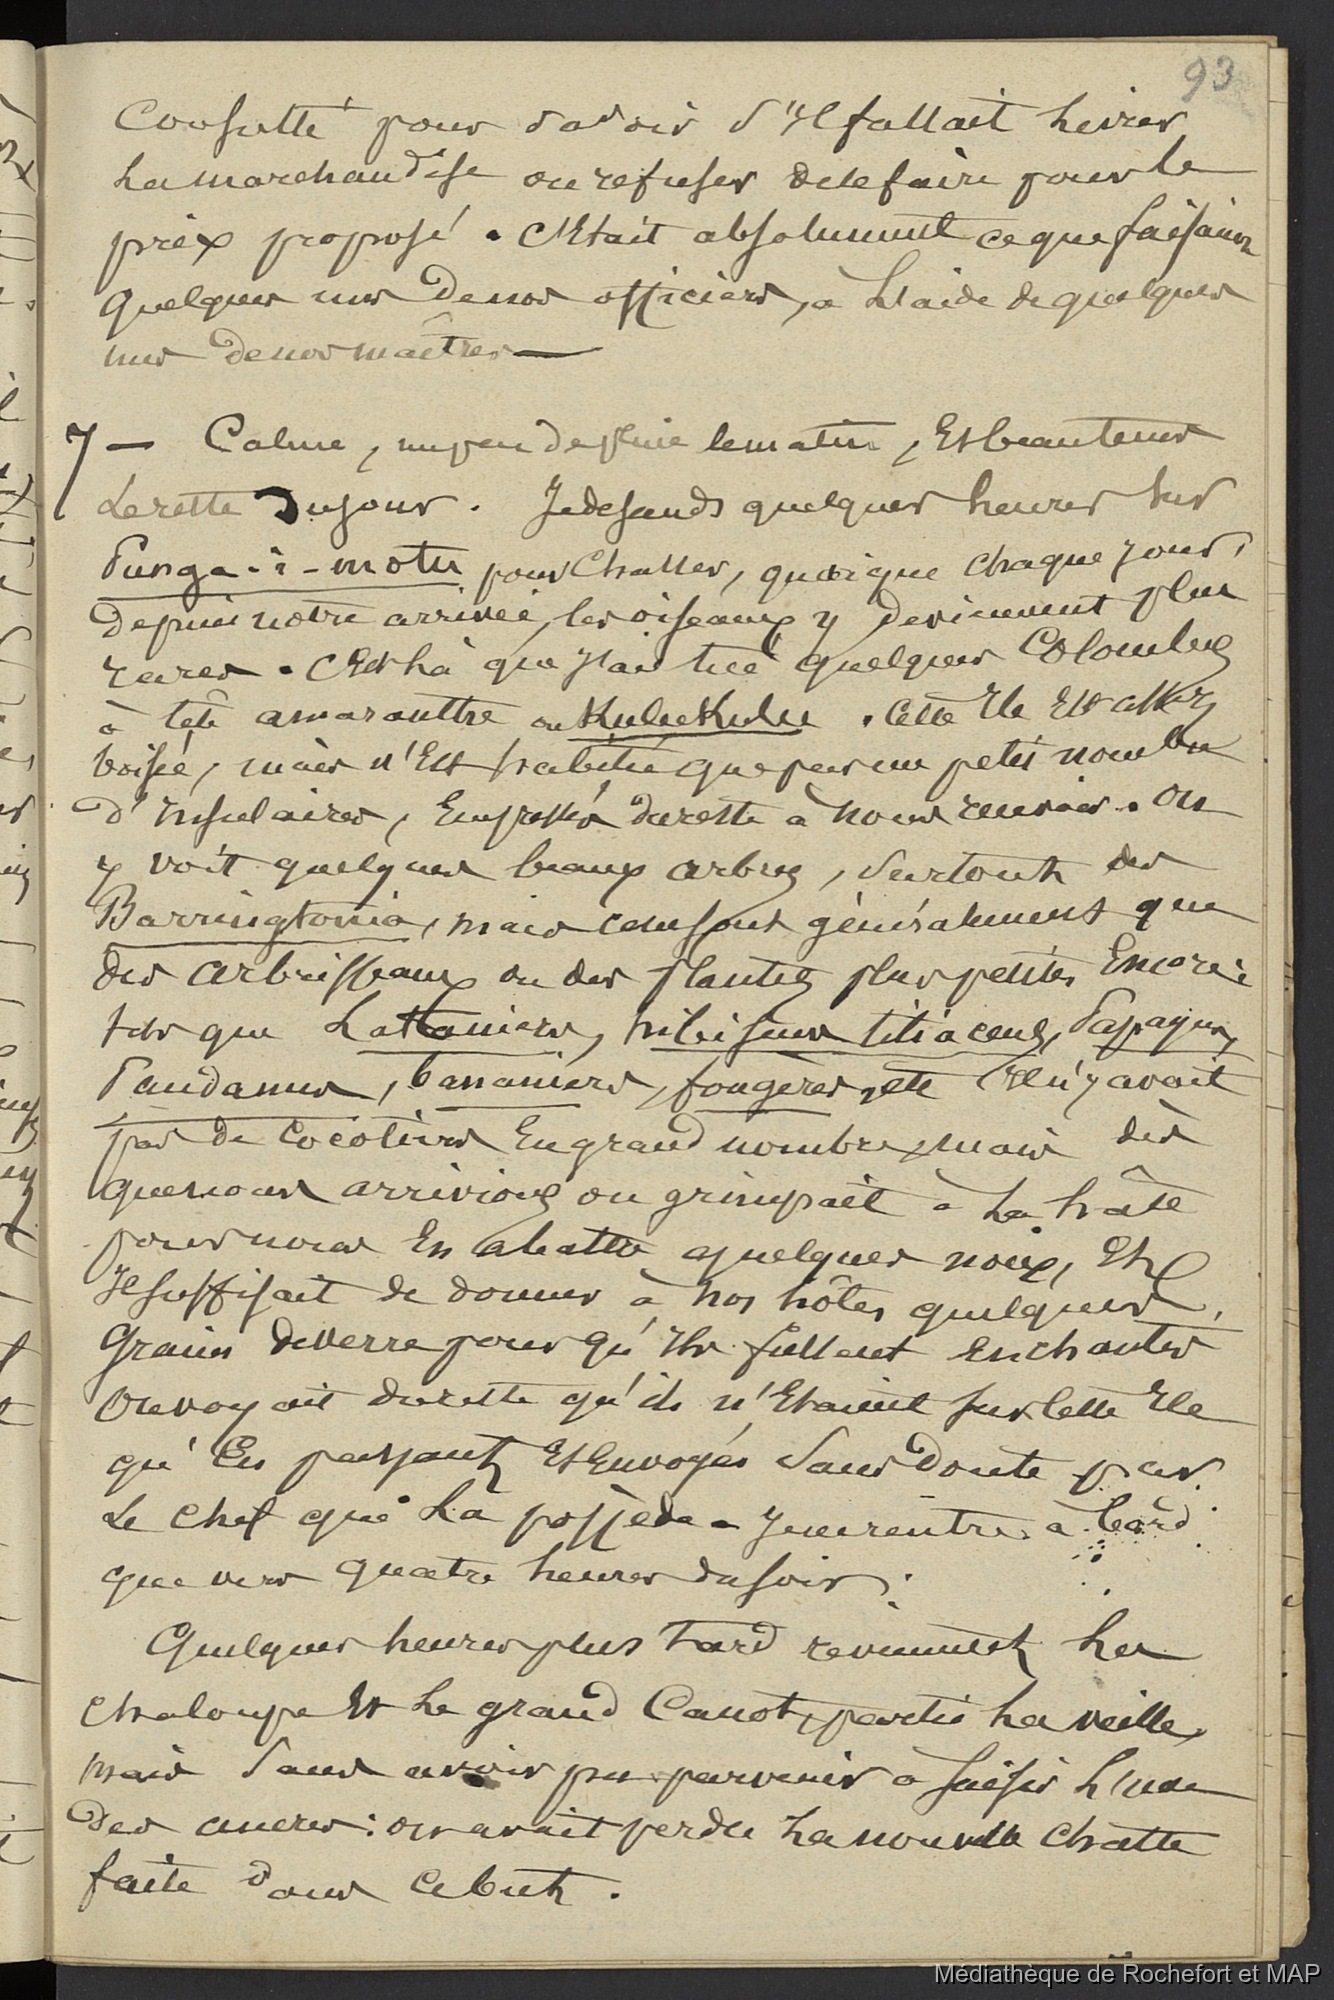 93
Consulté pour savoir s'Il fallait livrer
La marchandise ou refuser de le faire pour le
prix proposé. C'Etait absolument ce que faisaient
quelques uns de nos officiers, à L'aide de quelques
uns de nos maîtres —
7 — Calme, un peu de pluie le matin, Et beau temps
Le reste du jour. Je descends quelques heures sur
Panga-i-motu pour Chasser, quoique chaque jour,
depuis notre arrivée, les oiseaux y deviennent plus
rares. C'Est Là que J'ai tué quelques Colombes
à tête amaranthe ou KuluKulu. Cette Ile Est assez
boisée, mais n'Est habitée que par un petit nombre
d'Insulaires, Empressés du reste à nous recevoir. On
y voit quelques beaux arbres, surtout des
Barringtonia, mais ce ne sont généralement que
des arbrisseaux ou des plantes plus petites Encore:
tels que Lataniers, hibiscus tiliaceus, Papayers,
Pandanus, bananiers, fougères, etc Il n'y avait
pas de Cocotiers En grand nombre, mais dès
que nous arrivions on grimpait à La hâte
pour nous En abattre quelques noix, Et
Il suffisait de donner à nos hôtes quelques
Grains de verre pour qu'Ils fussent Enchantés
On voyait du reste qu'ils n'Etaient sur cette Ile
qu'En passant Et Envoyés sans doute par
Le Chef qui La possède. Je ne rentre à bord
que vers quatre heures du soir.
Quelques heures plus tard reviennent La
Chaloupe Et Le grand Canot, partis La veille,
mais sans avoir pu parvenir à saisir L'une
des ancres: on avait perdu La nouvelle chatte
faite dans ce but.
Médiathèque de Rochefort et MAP